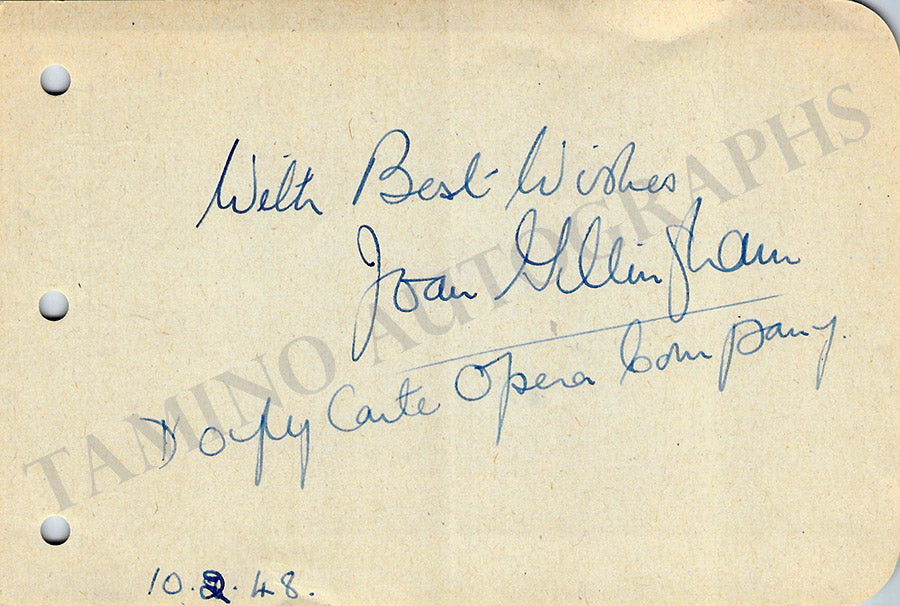 With Best Wishes
Joan Gillingham
D'Oyly Carte Opera Company.
10.2.48.
TAMINO AUTOGRAPHS